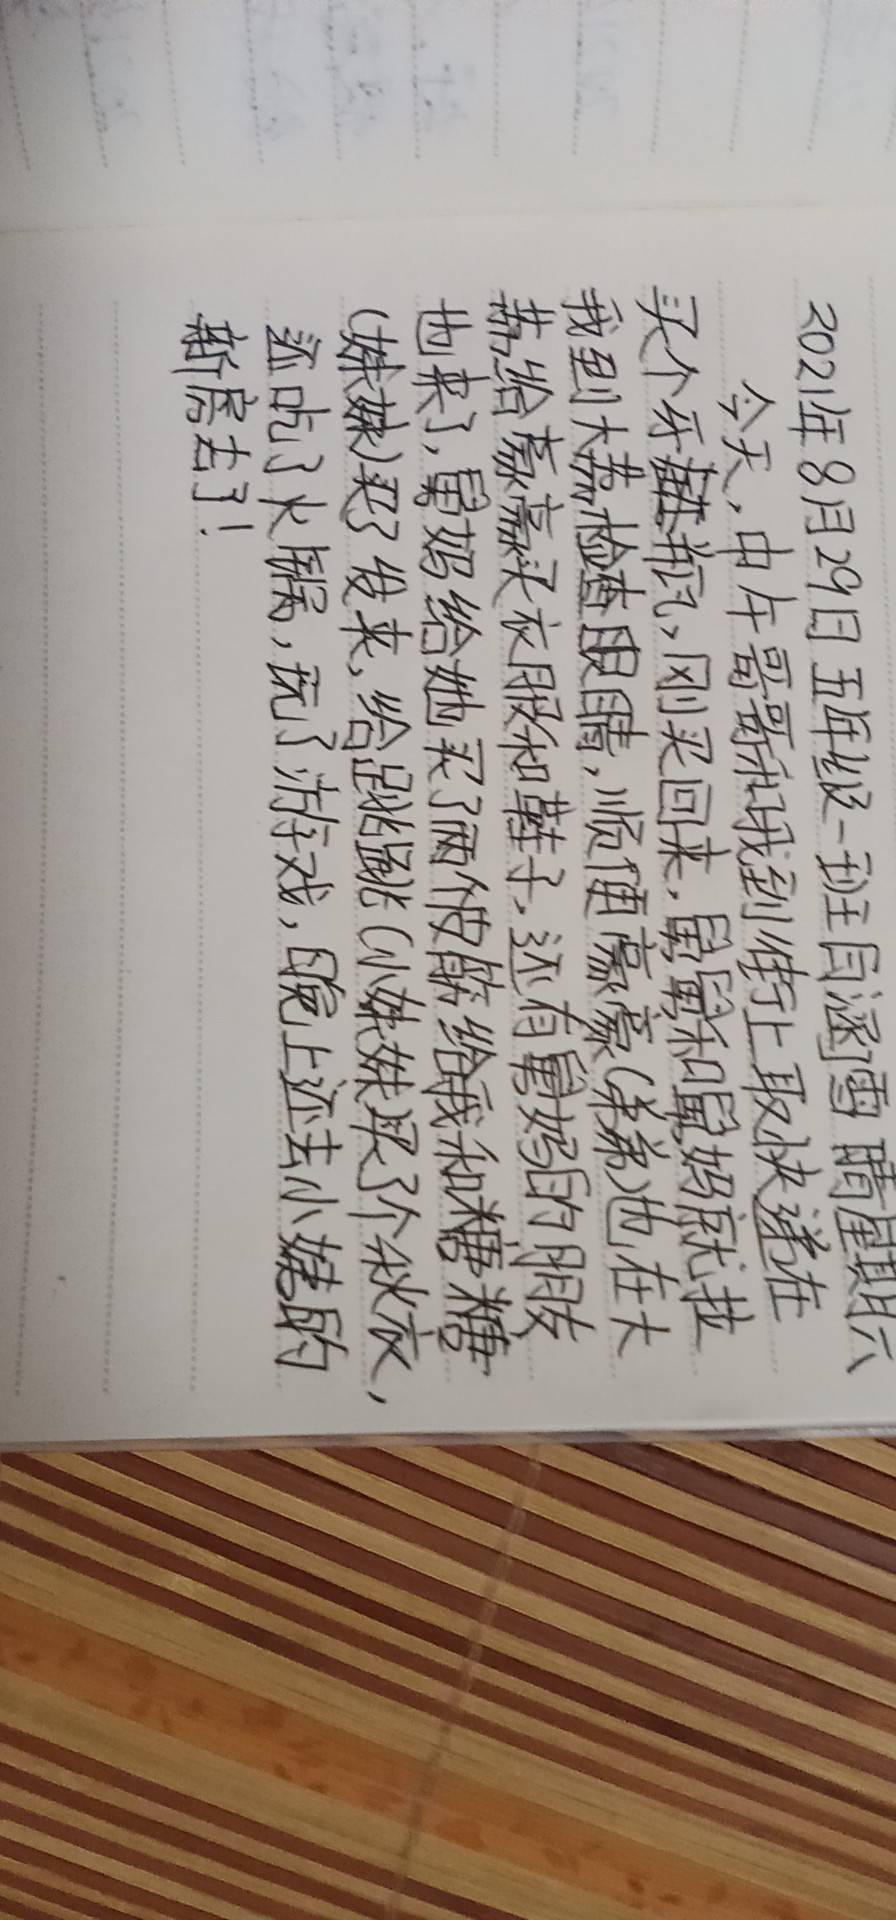 2021年8月29日 五年级一班 吕涵雪 晴 星期六
今天,中午哥哥和我到街上取快递在
买个牙瓶,刚买回来,舅舅和舅妈就拉
我到大荔检查眼睛,顺便豪豪(弟弟)也在大
荔给豪豪买衣服和鞋子,还有舅妈的朋友
也来了,舅妈给她买了两个皮筋给我和糖糖
(妹妹)买了发夹,给跳跳(小妹妹买了个秋衣,
还吃了火锅,玩了游戏,晚上还去小姨的
新房去了!